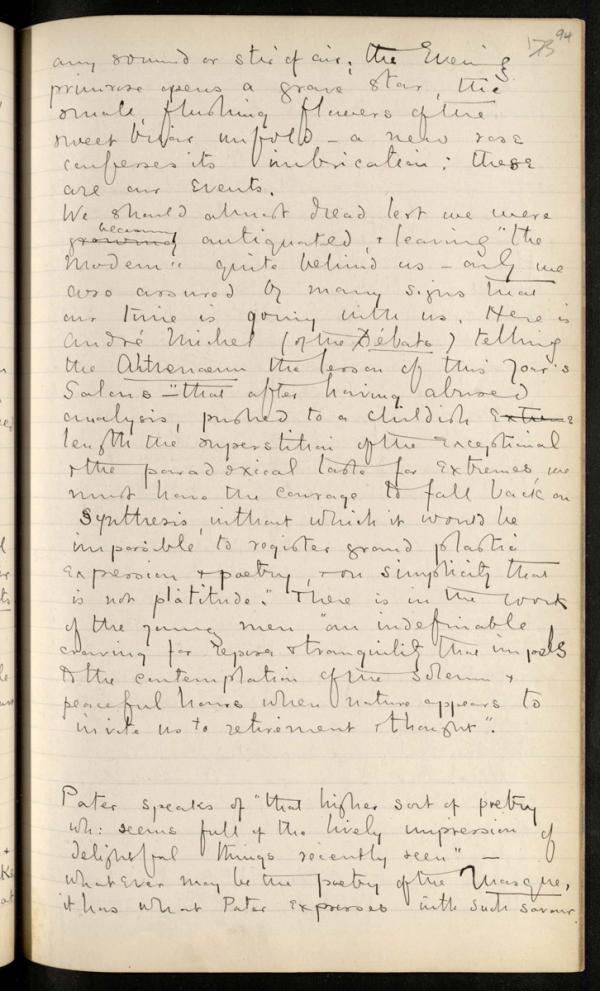 94
173
any sound or stir of air; the Evening
primrose opens a grave star, the
small, flushing flowers of the
sweet briar unfold – a new rose
confesses its imbrication: these
are our Events.
We should almost dread lest we were
becoming
growing antiquated, + leaving "the
Modern" quite behind us – only we
are assured by many signs that
our time is going with us. Here is
André Michel (of the Débats) telling
the Athenæum the lesson of this Year's
Salons – "that after having abused
analysis, pushed to a childish Extreme
length the superstition of the Exceptional
+ the paradoxical taste for Extremes we
must have the courage to fall back on
Synthesis, without which it would be
impossible to register grand plastic
Expression + poetry, + on simplicity that
is not platitude." There is in the work
of the young men "an indefinable
craving for repose + tranquility that impels
to the contemplation of the solemn +
peaceful hours when nature appears to
invite us to retirement + thought".
Pater speaks of "that higher sort of poetry
wh: seems full of the lively impression of
delightful things recently seen" –
whatEver may be the poetry of the Masque,
it has what Pater Expresses with such savour